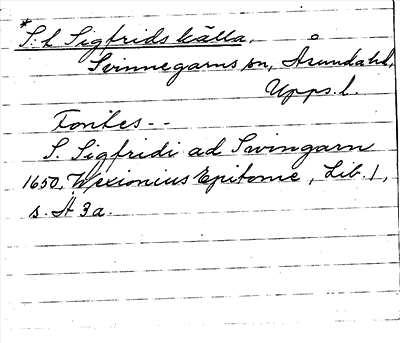 *S:t Sigfrids källa,
Svinnegarns sn, Åsundahd,
Upps. l.
Fontes --
S. Sigfridi ad Swingarn
1650, Wexionius Epitome, Lib. 1,
s. A 3a.